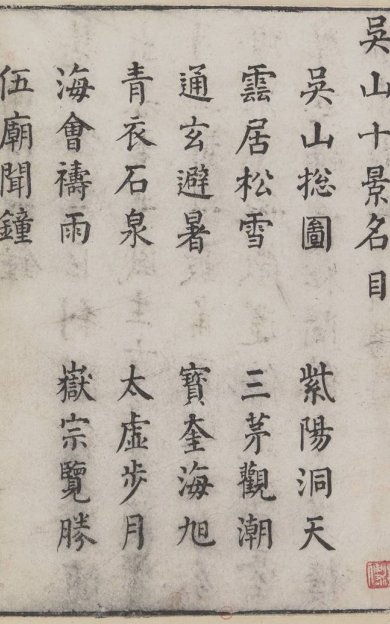 吳山十景名目
吳山捴圖 紫陽洞天
雲居松雪 三茅觀潮
通玄避暑 寶奎海旭
青衣石泉 太虛步月
海會禱雨 嶽宗覽勝
伍廟聞鐘